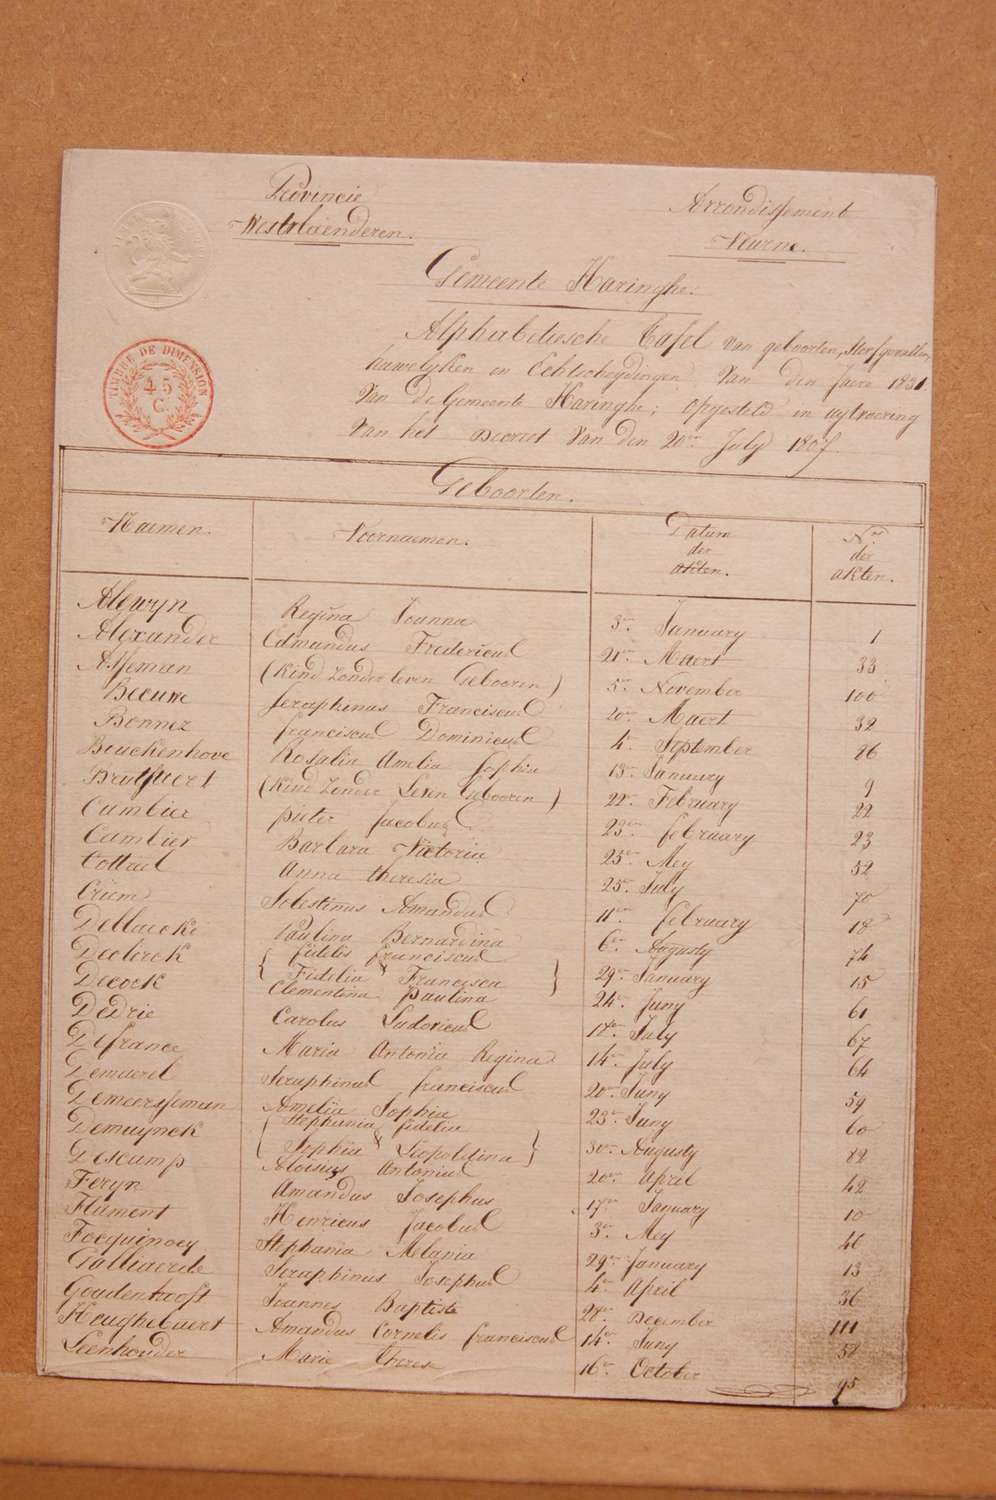 Provincie
Westvlaenderen.
Arrondissement
Veurne.
Gemeente Haringhe.
TIMBRE DE DIMENSION
45
C.
Alphabetische Tafel van geboorten, sterfgevallen,
huwelyken en Echtscheydingen Van den Jaere 1831
Van de Gemeente Haringhe; opgesteld in uytvoering
Van het Decreet Van den 20en July 1807.
Geboorten.
Naemen. Voornaemen. Datum der akten. Nos der akten.
Alewyn Regina Joanna 3en January 1
Alexander Edmundus Fredericus 21en Maert 33
Alseman (Kind zonder leven Gebooren) 5en November 100
Beeuwe Seraphinus Franciscus 20en Maert 32
Bonnez franciscus Dominicus 4 September 86
Bouckenhove Rosalia Amelia Sophia 13en January 9
(Kind Zonder Leven Gebooren) 22en February 22
Cambier pieter Jacobus 23en february 23
Cambier Barbara Victoria 23en Mey 52
Cottrel Anna theresia 25en July 70
Criem Selestinus Amandus 11en february 18
Deblaecke Paulina Bernardina 6en Augusty 74
Declerck { fidelis franciscus & Fidelia Francisca } 29en January 15
Decock Clementina paulina 24en Juny 61
Dedrie Carolus Ludovicus 17en July 67
Defrance Maria Antonia Regina 14en July 64
Demaerel Seraphinus franciscus 20en Juny 59
Demeersseman Amelia Sophia 23en Juny 60
Demuynck { Stephania fidelia & Sophia Leopoldina } 30en Augusty 82
Descamp Aloisius Antonius 20en April 42
Feryn Amandus Josephus 17en January 10
Flament Henricus Jacobus 3en Mey 46
Focquinoey Stephania Melania 29en January 13
Galliaerde Seraphinus Josephus 4en April 36
Goudenhooft Joannes Baptiste 28en December 111
Houghebaert Amandus Cornelis franciscus 14en Juny 58
Leenhouder Marie Therese 16en October 95